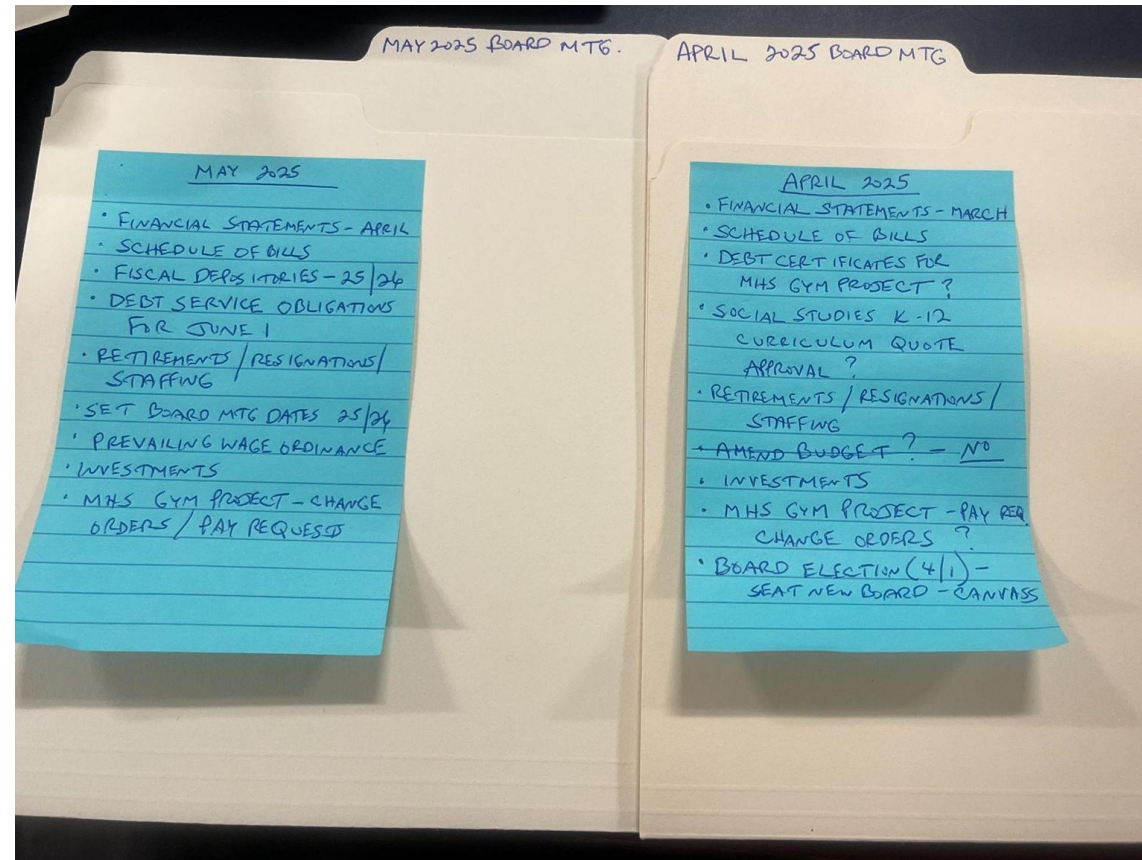 MAY 2025 BOARD MTG.
MAY 2025
• FINANCIAL STATEMENTS - APRIL
• SCHEDULE OF BILLS
• FISCAL DEPOSITORIES - 25/26
• DEBT SERVICE OBLIGATIONS
FOR JUNE 1
• RETIREMENTS / RESIGNATIONS /
STAFFING
• SET BOARD MTG DATES 25/26
• PREVAILING WAGE ORDINANCE
• INVESTMENTS
• MHS GYM PROJECT - CHANGE
ORDERS / PAY REQUESTS
APRIL 2025 BOARD MTG
APRIL 2025
• FINANCIAL STATEMENTS - MARCH
• SCHEDULE OF BILLS
• DEBT CERTIFICATES FOR
MHS GYM PROJECT ?
• SOCIAL STUDIES K-12
CURRICULUM QUOTE
APPROVAL ?
• RETIREMENTS / RESIGNATIONS /
STAFFING
• AMEND BUDGET ? - NO
• INVESTMENTS
• MHS GYM PROJECT - PAY REQ.
CHANGE ORDERS ?
• BOARD ELECTION (4/1) -
SEAT NEW BOARD - CANVASS